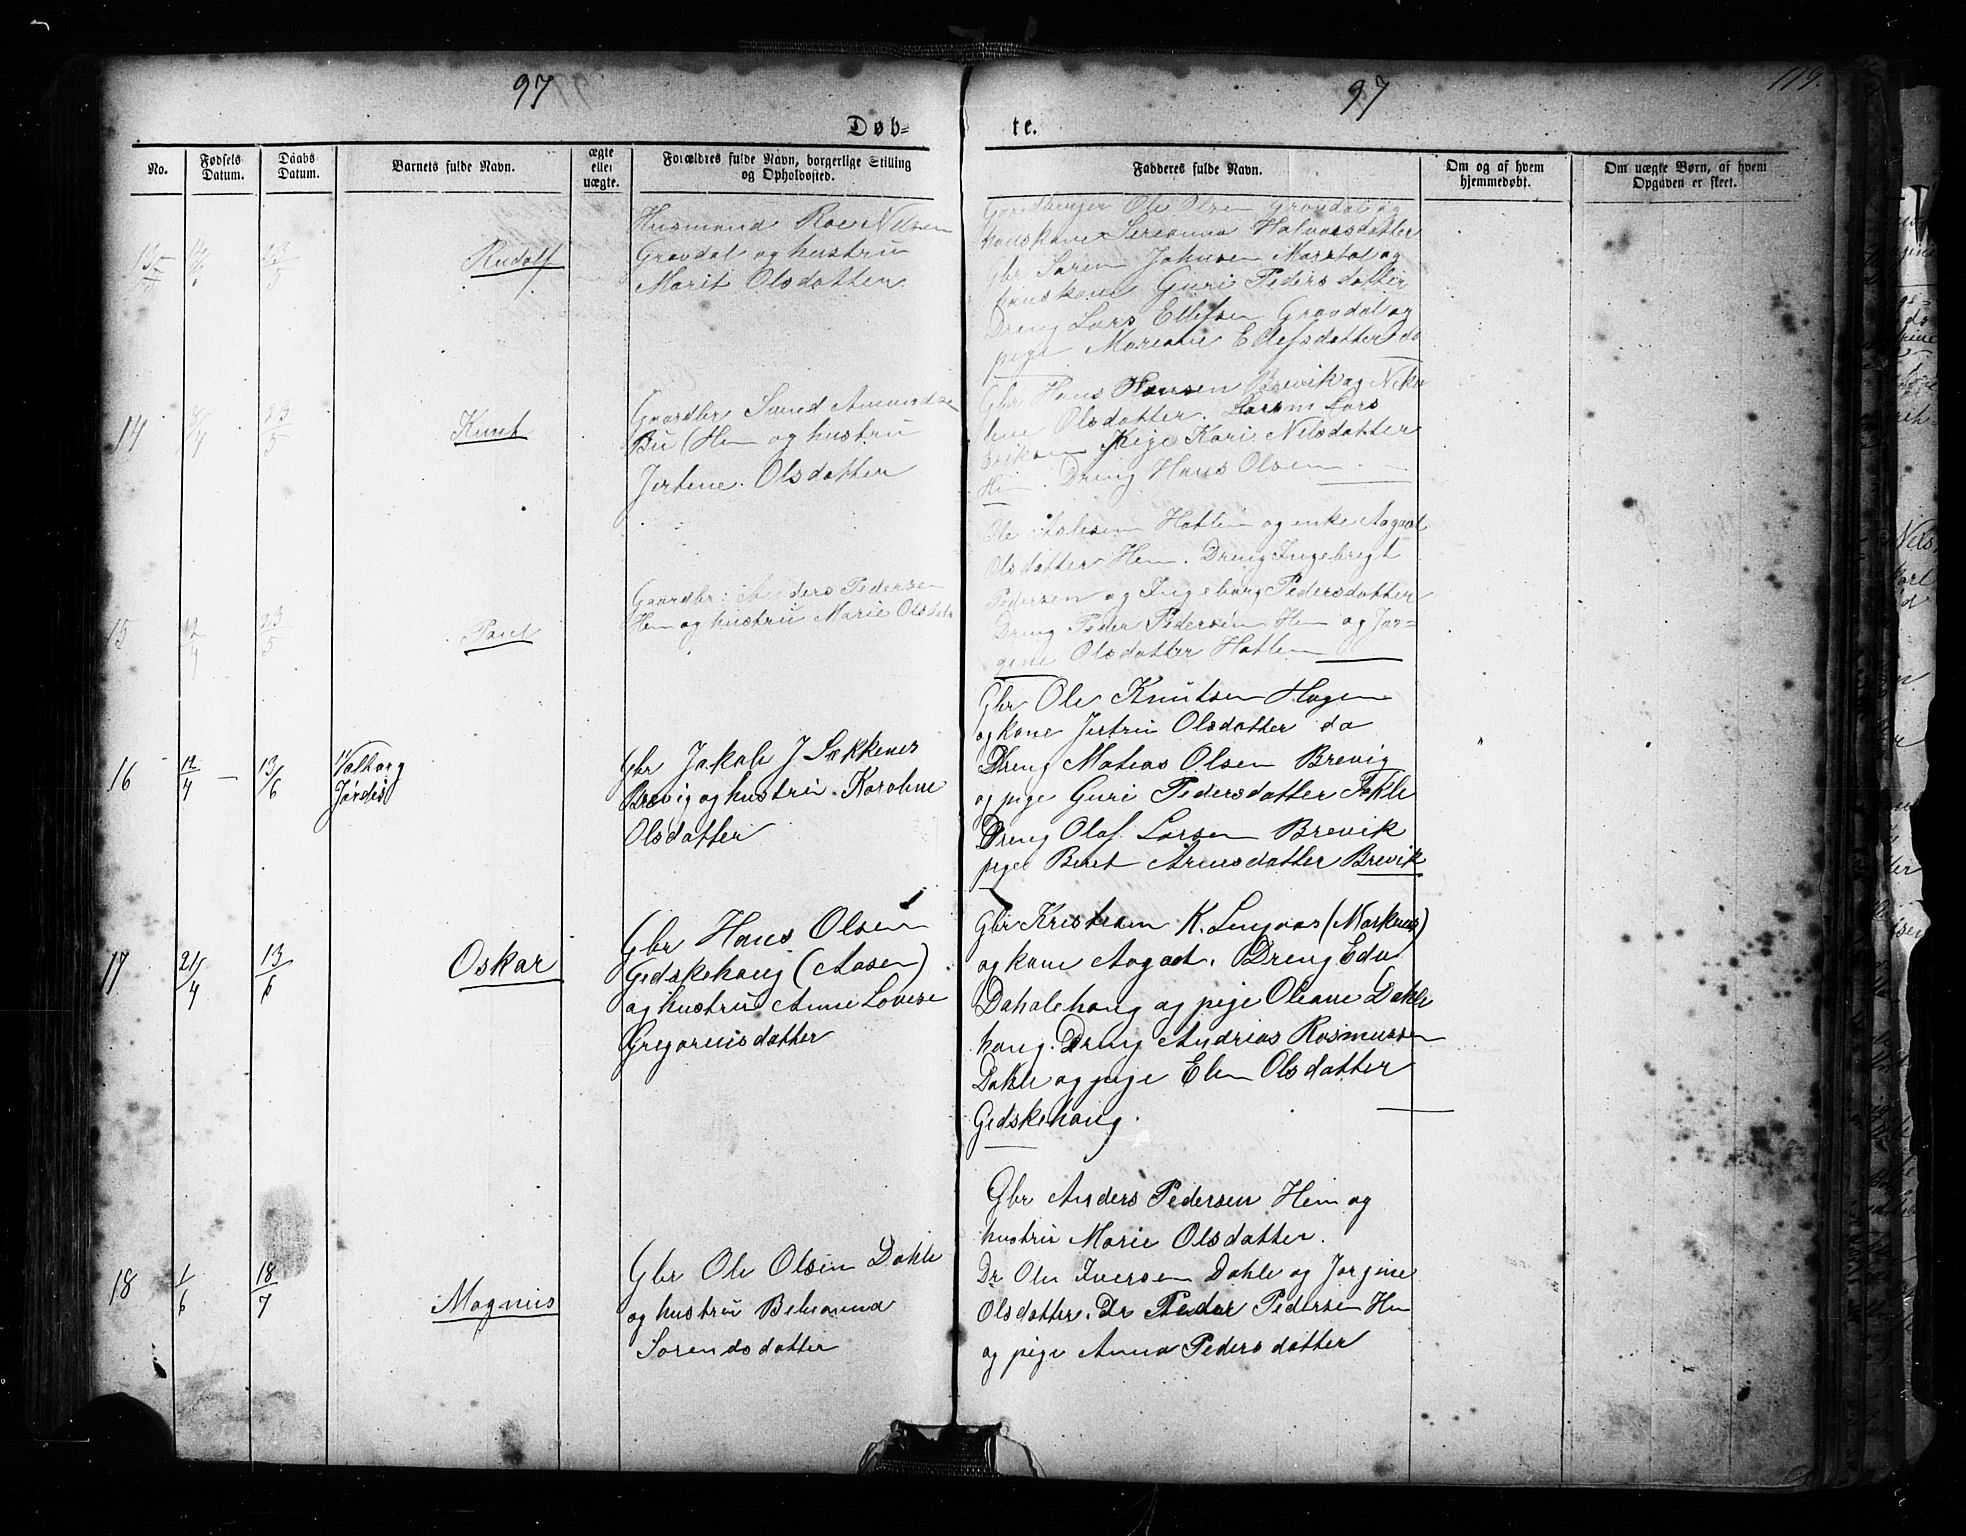 97
97
119.
Døb=
te.
No.
Fødsels Datum.
Daabs Datum.
Barnets fulde Navn.
ægte eller uægte.
Forældres fulde Navn, borgerlige Stilling og Opholdssted.
Fadderes fulde Navn.
Om og af hvem hjemmedøbt.
Om uægte Børn, af hvem Opgaven er skeet.
23/5
Rudolf
Husmand Roe Nilsen
Gravdal og hustru
Marit Olsdatter
Gaardbruger Ole Olsen Gravdal og
huuskone Halvorsdatter
Gbr Søren Johnsen og
huuskone Guri Pedersdatter
Dreng Lars Ellefsen Gravdal og
pige Mariane Ellefsdatter do
14
23/5
Knut
Gaardbr Svend Amundsen
Bu (Hem og hustru
Olsdatter
Gbr Hans Hansen Brevik og
Olsdatter. Lars
Pige Kari Nilsdatter
Hem. Dreng Hans Olsen
15
12/4
23/5
Paul
Gaardbr: Anders Pedersen
Hem og hustru Marie Olsdatr
Ole Hatlem og enke Aagaat
Olsdatter Hem. Dreng Ingebrigt
Pedersen og Ingeborg Pedersdatter
Dreng Peder Pedersen Hem og Jør=
gine Olsdatter Hatlem
16
12/4
13/6
Valborg
Jørdis
Gbr Jakob J Sækkenes
Brevig og hustru. Karoline
Olsdatter
Gbr Ole Knutsen Hagen
og kone Jertru Olsdatter do
Dreng Matias Olsen Brevig
og pige Guri Pedersdatter
Dreng Olaf Larsen Brevik
pige Beret Arnesdatter Brevik
17
21/4
13/6
Oskar
Gbr Hans Olsen
Gedskehaug (Aasen)
og hustru Anne Lovise
Gregoriusdatter
Gbr Kristian K. Lingaas (Marknes)
og kone Aagaat. Dreng Edv.
Dahlehaug og pige Oleane Dahle
haug. Dreng Andrias Rasmussen
Dahle og pige Elen Olsdatter
Gedskehaug.
18
1/6
18/7
Magnus
Gbr Ole Olsen Dahle
og hustru
Sørendsdatter
Gbr Anders Pedersen Hem og
hustru Marie Olsdatter.
Dr Ole Iversen Dahle og Jørgine
Olsdatter. Dr Peder Pedersen Hem
og pige Anna Pedersdatter